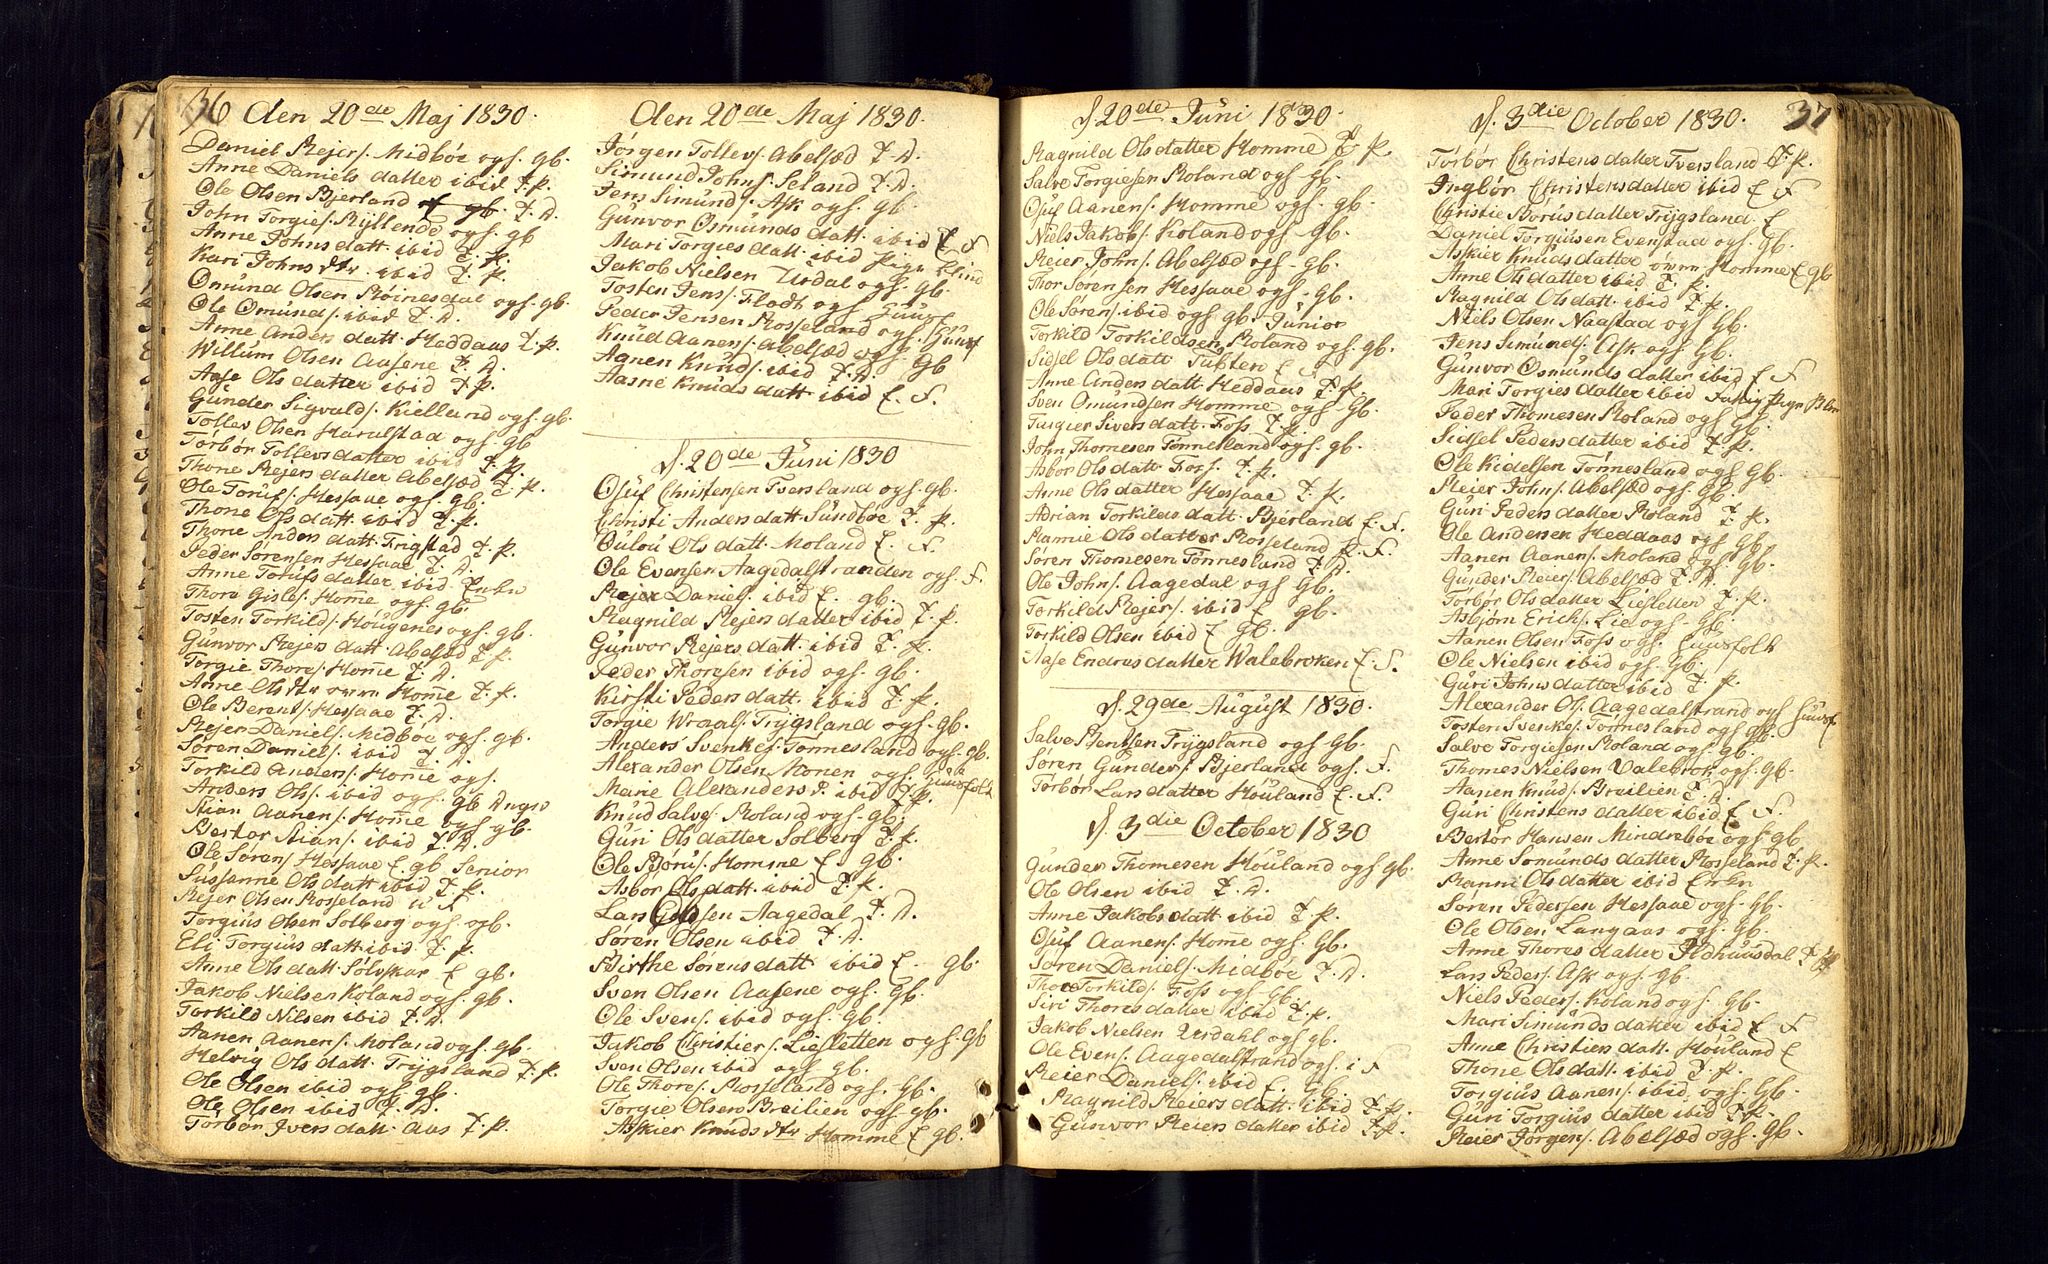 36 Den 20de Maj 1830.
Daniel Rejers. Midbøe ogf. gb.
Anne Daniels datter ibid T. p.
Ole Olsen Bjerland T. D.
John Torgies. Rÿllende ogf. gb
Anne Johns datt. ibid T. p.
Kari Johns dtr. ibid T. p.
Omund Olsen Røinesdal ogf. gb.
Ole Omunds. ibid T. D.
Anne Anders datt Heddaas T. p.
Willum Olsen Aasene T. D.
Aase Ols datter ibid T. p.
Gunder Sigvalds. Kielland ogf. gb.
Tollev Olsen Haralstad ogf. gb
Torbør Tollevs datter ibid T. p.
Thone Rejers datter Abelsæd T. p.
Ole Torufs. Hessaae ogf. gb.
Thone Ols datt. ibid T. p.
Thone Anders datt. Trigstad T. p.
Peder Sørensen Hessaae T. D.
Anne Torufs datter ibid Enke
Thore Gisles. Home ogf. gb.
Tosten Torkild. Hougenes ogf. gb.
Gunvor Rejers datt. Abelsæd T. p.
Torgie Thores. Home T. D.
Anne Ols dtr Home T. p.
Ole Berents. Hessaae T. D.
Rejer Daniels. Midbøe ogf. gb.
Søren Daniels. ibid T. D.
Torkild Anders. Home ogf.
Anders Ols. ibid ogf. gb
Stian Aanens. Home ogf gb.
Bertor Stians. ibid T. D.
Ole Sørens. Hessaae E. gb Senior
Sussanne Ols datt ibid T. p.
Rejer Olsen Rosseland u F
Torgius Olsen Solberg ogf. gb.
Eli Torgius datt. ibid T. p.
Anne Ols datt. Sølvskar E gb.
Jakob Nielsen Koland ogf. gb.
Torkild Nilsen ibid T. D.
Aanen Aanens. Moland ogf. gb.
Helvig Ols datt. Trÿgsland T. p.
Ole Olsen ibid ogf gb.
Ole Olsen ibid T. D.
Torbør Ivers datt. Aas T. p.
Den 20de Maj 1830.
Jørgen Tollevs. Abelsæd T. D.
Simund Johns. Seland T. D.
Jens Simunds. Ask ogf. gb.
Gunvor Osmunds datt. ibid E F
Mari Torgies datt. ibid Pige blind
Jakob Nielsen Urdal ogf. gb.
Tosten Jens. Flodt ogf
Peder Jensen Rosseland ogf. Huusf
Knud Aanens. Abelsæd ogf. gb
Aanen Knuds. ibid T. D.
Aasne Knuds datt. ibid E. F.
d. 20de Juni 1830
Osuf Christensen Tversland ogf. gb.
Christi Anders datt. Sundbøe T. p.
Oulou Ols datt. Moland E. F.
Ole Evensen Aagedalstranden ogf. F.
Rejer Daniels. ibid E. gb.
Ragnild Rejers datter ibid T. p.
Gunvor Rejers datt. ibid T. p.
Peder Thoresen ibid ogf. gb.
Kirsti Peders datt. ibid T. p.
Torgie Wroals. Trÿgsland ogf. gb.
Anders Svenkes. Tonnesland ogf. gb.
Alexander Olsen Monen ogf. Huusfolk
Marie Alexanders d. ibid T. p.
Knud Salves. Roland ogf. gb.
Guri Ols datter Solberg T. p.
Ole Bjørus. Homme E. gb.
Asbor Ols datt. ibid T. p.
Lars Olsen Aagedal T. D.
Søren Olsen ibid T. D.
Birthe Sørens datt ibid E. gb.
Sven Olsen Aasene ogf. gb.
Ole Svens. ibid ogf. gb.
Jakob Christiers. Liesletten ogf. gb
Sven Olsen ibid ogf gb.
Ole Thores. Rosseland ogf. gb.
Torgie Olsen Breilien ogf. gb.
Askier Knuds dtr Homme E gb.
d. 20de Juni 1830.
Ragnild Ols datter Homme T. p.
Salve Torgiesen Roland ogf gb.
Osuf Aanens. Homme ogf. gb.
Niels Jakobs. Koland ogf. gb.
Reier Johns. Abelsæd ogf. gb.
Thor Sørensen Hessaae ogf. gb.
Ole Sørens. ibid ogf gb. Junior
Torkild Torkildsen Roland ogf. gb.
Sidsel Ols datt. Tubten E F
Anne Anders datt. Heddaas T. p.
Sven Omundsen Homme ogf. gb.
Turgier Sivers datt. Foss T. p.
John Thomesen Tonnesland ogf. gb.
Asbor Ols datt. Foss. T. p.
Anne Ols datter Hessaae T. p.
Adrian Torkilds datt. Bjerland E. F.
Ramie Ols datter Rosseland E. F.
Søren Thomesen Tønnesland T. D.
Ole Johns. Aagedal ogf gb.
Torkild Rejers. ibid E gb.
Torkild Olsen ibid E gb.
Aase Endres datter Walebroken E. F.
d. 29de August 1830.
Salve Bentsen Trÿgsland ogf. gb.
Søren Gunders. Bjerland ogf. F.
Torbør Lars datter Houland E. F.
d. 3die October 1830
Gunder Thomesen Houland ogf gb.
Ole Olsen ibid T. D.
Anne Jakobs datt. ibid T. p.
Osuf Aanens. Home ogf. gb.
Søren Daniels. Midbøe T. D.
Thore Torkilds. Foss ogf gb.
Siri Thores datter ibid T. p.
Jakob Nielsen Urdahl ogf gb.
Ole Evens. Aagedalstrand ogf. i F
Reier Daniels. ibid E. gb.
Ragnild Reiers datt. ibid T. p.
Gunvor Reiers datter ibid T. p.
d. 3die October 1830. 37
Torbør Christens datter Tversland T. p.
Ingbør Christens datter ibid E F
Christie Børus datter Trÿgsland E
Daniel Torgiusen Evenstad ogf. gb.
Askier Knuds datter Homme E gb
Anne Ols datter ibid T. p.
Ragnild Ols datt. ibid T. p.
Niels Olsen Naastad ogf gb.
Jens Simunds. Ask ogf. gb.
Gunvor Osmunds datter ibid E F
Mari Torgies datter ibid Pige
Peder Thomesen Roland ogf gb.
Sidsel Peders datter ibid T. p.
Ole Kidelsen Tonnesland ogf gb.
Reier Johns. Abelsæd ogf. gb.
Guri Peders datter Roland T. p.
Ole Andersen Heddaas ogf gb.
Aanen Aanens. Moland ogf gb.
Gunder Reiers. Abelsæd T. D.
Torbør Ols datter Liesletten T. p.
Asbjørn Erichs. Lie ogf. gb.
Aanen Olsen Foss ogf. Huusfolk
Ole Nielsen ibid ogf. gb.
Guri Johns datter ibid T. p.
Alexander Ols. Aagedalstrand ogf Huusf
Tosten Svenkes. Tønnesland ogf gb.
Salve Torgiesen Roland ogf. gb.
Thomes Nielsen Valebrok ogf. gb.
Aanen Knuds. Breilien T. D.
Guri Christens datter ibid E F
Bertor Hansen Mindrebøe ogf. gb
Anne Somunds datter Rosseland T. p.
Ranni Ols datter ibid Enke
Søren Pedersen Hessaae ogf. gb.
Ole Olsen Langaas ogf. gb.
Anne Thores datter Ildhuusdal T.
Lars Peders. Ask ogf. gb.
Niels Peders. Koland ogf. gb.
Mari Simunds datter ibid E F
Anne Christiens datt. Houland E
Thone Ols datt. ibid T. p.
Torgius Aanens. ibid. ogf. gb.
Guri Torgius datter ibid T. p.
Reier Jørgens. Abelsæd ogf. gb.